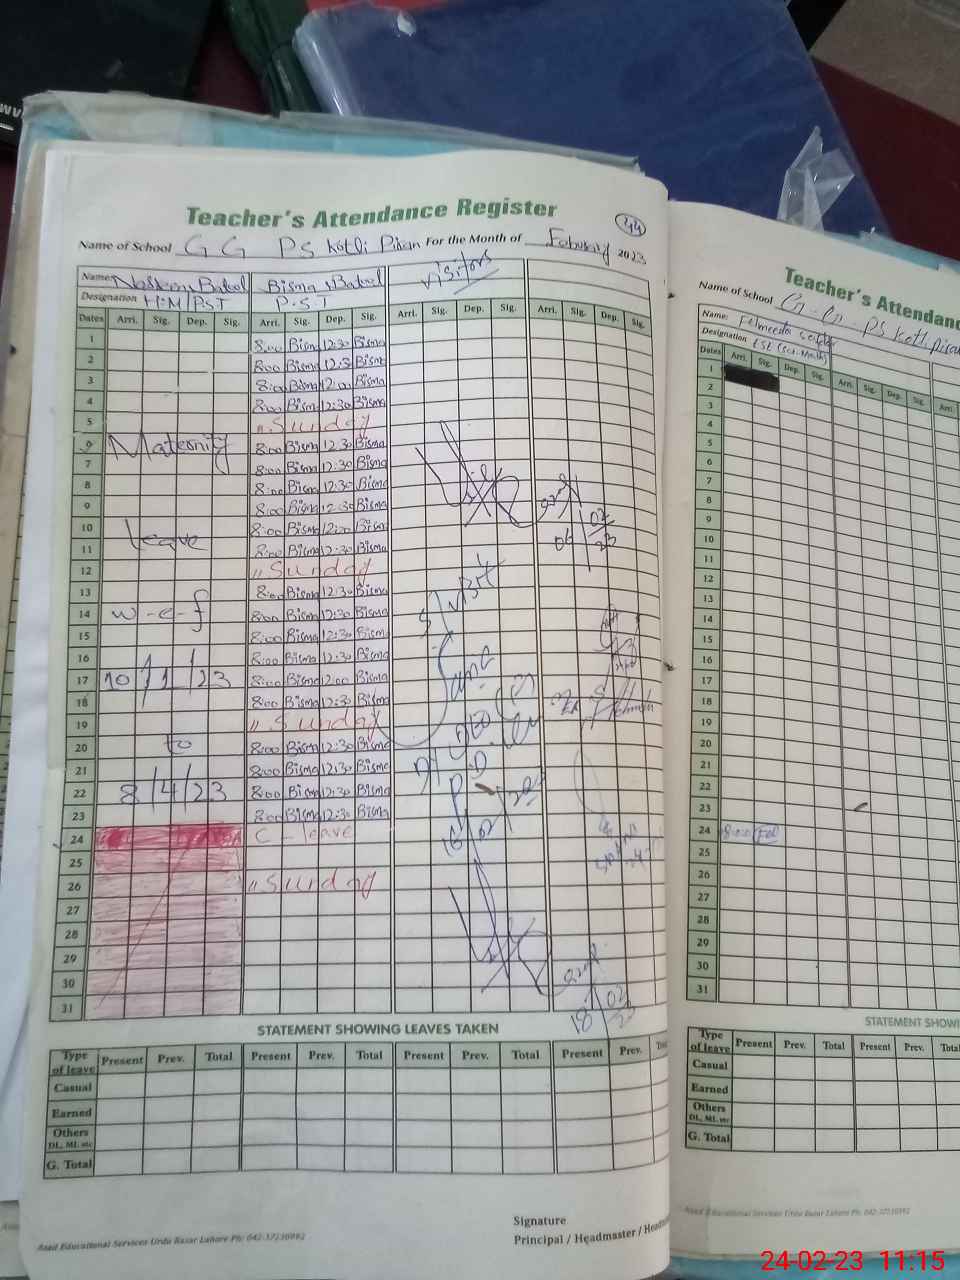 Teacher's Attendance Register
44
Name of School G G PS Kotli Piran For the Month of February 2023
Name: Batool Bisma Batool Visitors
Designation H.M/PST P.S.T
Dates Arri. Sig. Dep. Sig. Arri. Sig. Dep. Sig. Arri. Sig. Dep. Sig. Arri. Sig. Dep. Sig.
1 8:00 Bisma 12:30 Bisma
2 8:00 Bisma 12:30 Bisma
3 8:00 Bisma 12:00 Bisma
4 8:00 Bisma 12:30 Bisma
5 " Sunday
6 Maternity 8:00 Bisma 12:30 Bisma
7 8:00 Bisma 12:30 Bisma
8 8:00 Bisma 12:30 Bisma
9 8:00 Bisma 12:30 Bisma
10 leave 8:00 Bisma 12:00 Bisma
11 8:00 Bisma 12:30 Bisma
12 " Sunday
13 8:00 Bisma 12:30 Bisma
14 w-e-f 8:00 Bisma 12:30 Bisma
15 8:00 Bisma 12:30 Bisma
16 8:00 Bisma 12:30 Bisma
17 10/1/23 8:00 Bisma 12:00 Bisma
18 8:00 Bisma 12:30 Bisma
19 " Sunday
20 to 8:00 Bisma 12:30 Bisma
21 8:00 Bisma 12:30 Bisma
22 8/4/23 8:00 Bisma 12:30 Bisma
23 8:00 Bisma 12:30 Bisma
24 C - leave
25
26 " Sunday
27
28
29
30
31
STATEMENT SHOWING LEAVES TAKEN
Type of leave Present Prev. Total Present Prev. Total Present Prev. Total Present Prev.
Casual
Earned
Others
DL, ML etc
G. Total
Signature
Principal / Headmaster /
Asad Educational Services Urdu Bazar Lahore Ph: 042-37230992
Teacher's
Name of School G. G. PS Kotli Piran
Name: Fehmeeda
Designation ESE (Sci-Math)
Dates Arri. Sig. Dep. Sig. Arri. Sig. Dep. Sig. Arri.
1
2
3
4
5
6
7
8
9
10
11
12
13
14
15
16
17
18
19
20
21
22
23
24 8:00
25
26
27
28
29
30
31
STATEMENT
Type of leave Present Prev. Total Present Prev.
Casual
Earned
Others
DL, ML etc
G. Total
Asad Educational Services Urdu Bazar Lahore Ph: 042-37230992
24-02-23 11:15